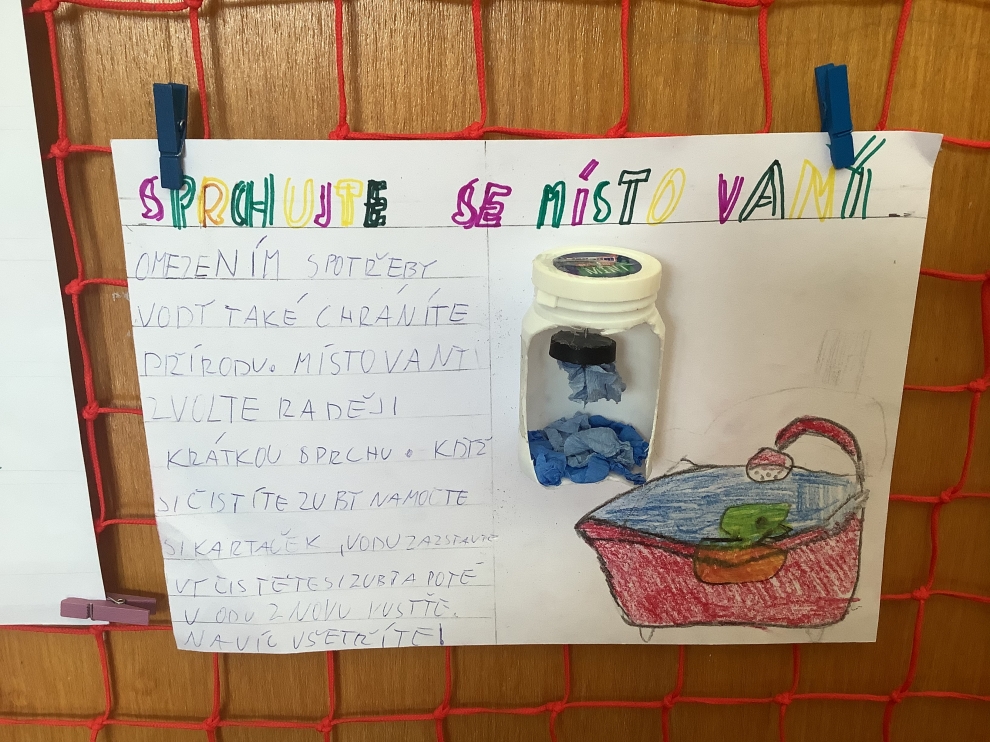 SPRCHUJTE SE MÍSTO VANÍ
OMEZENÍM SPOTŘEBY
VODY TAKÉ CHRÁNÍTE
PŘÍRODU. MÍSTO VANY
ZVOLTE RADĚJI
KRÁTKOU SPRCHU. KDYŽ
SI ČISTÍTE ZUBY NAMOČTE
SI KARTAČEK, VODU ZAZSTAVTE
VY ČISTĚTE SI ZUBY A POTÉ
VODU ZNOVU PUSŤTE.
NAVÍC UŠETŘÍTE!